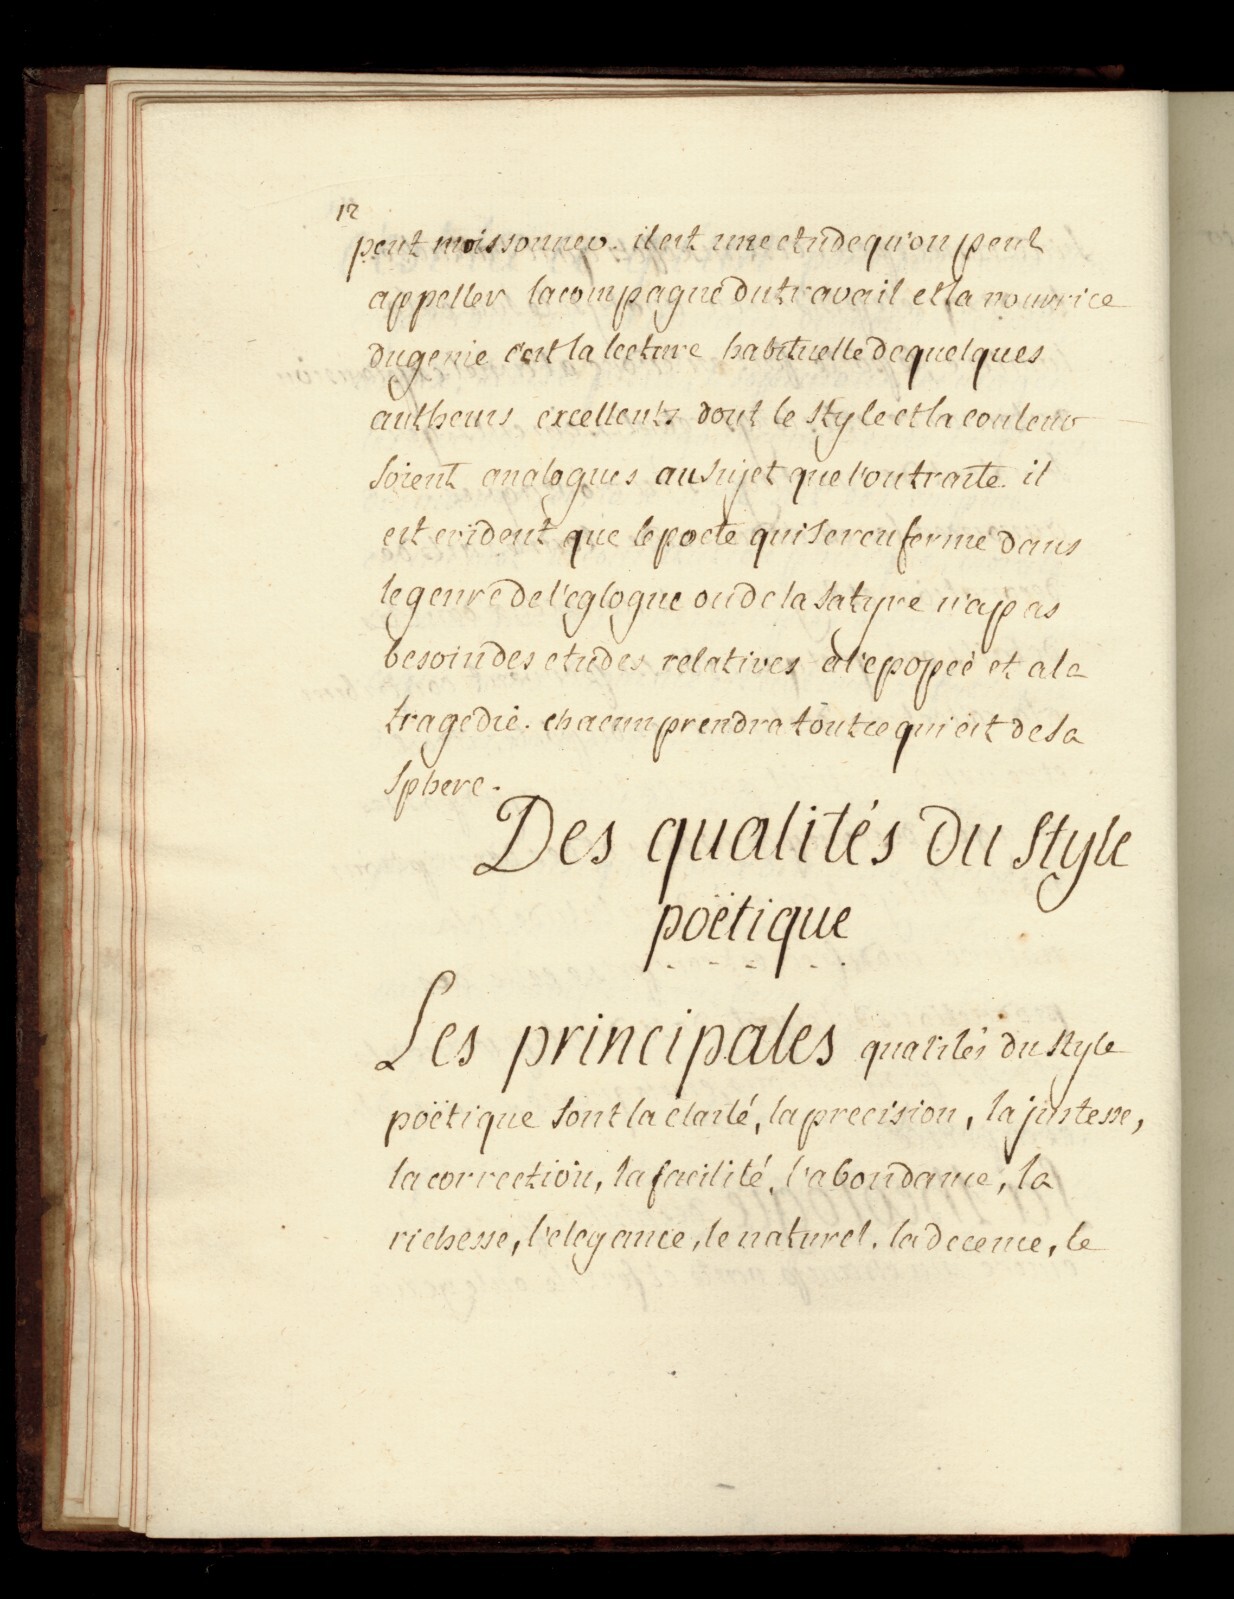 12
peut moissonner. il est une etude qu'on peut
appeller la compagne du travail et la nourrice
du genie c'est la lecture habituelle de quelques
autheurs excellents dont le style et la couleur
soient analogues au sujet que l'on traite. il
est evident que le poete qui se renferme dans
le genre de l'eglogue ou de la satyre n'a pas
besoin des etudes relatives a l'epopeé et a la
tragedie. chacun prendra tout ce qui est de sa
sphere.
Des qualités du style
poëtique
Les principales qualités du style
poëtique sont la clarté, la precision, la justesse,
la correction, la facilité, l'abondance, la
richesse, l'elegance, le naturel, la decence, le